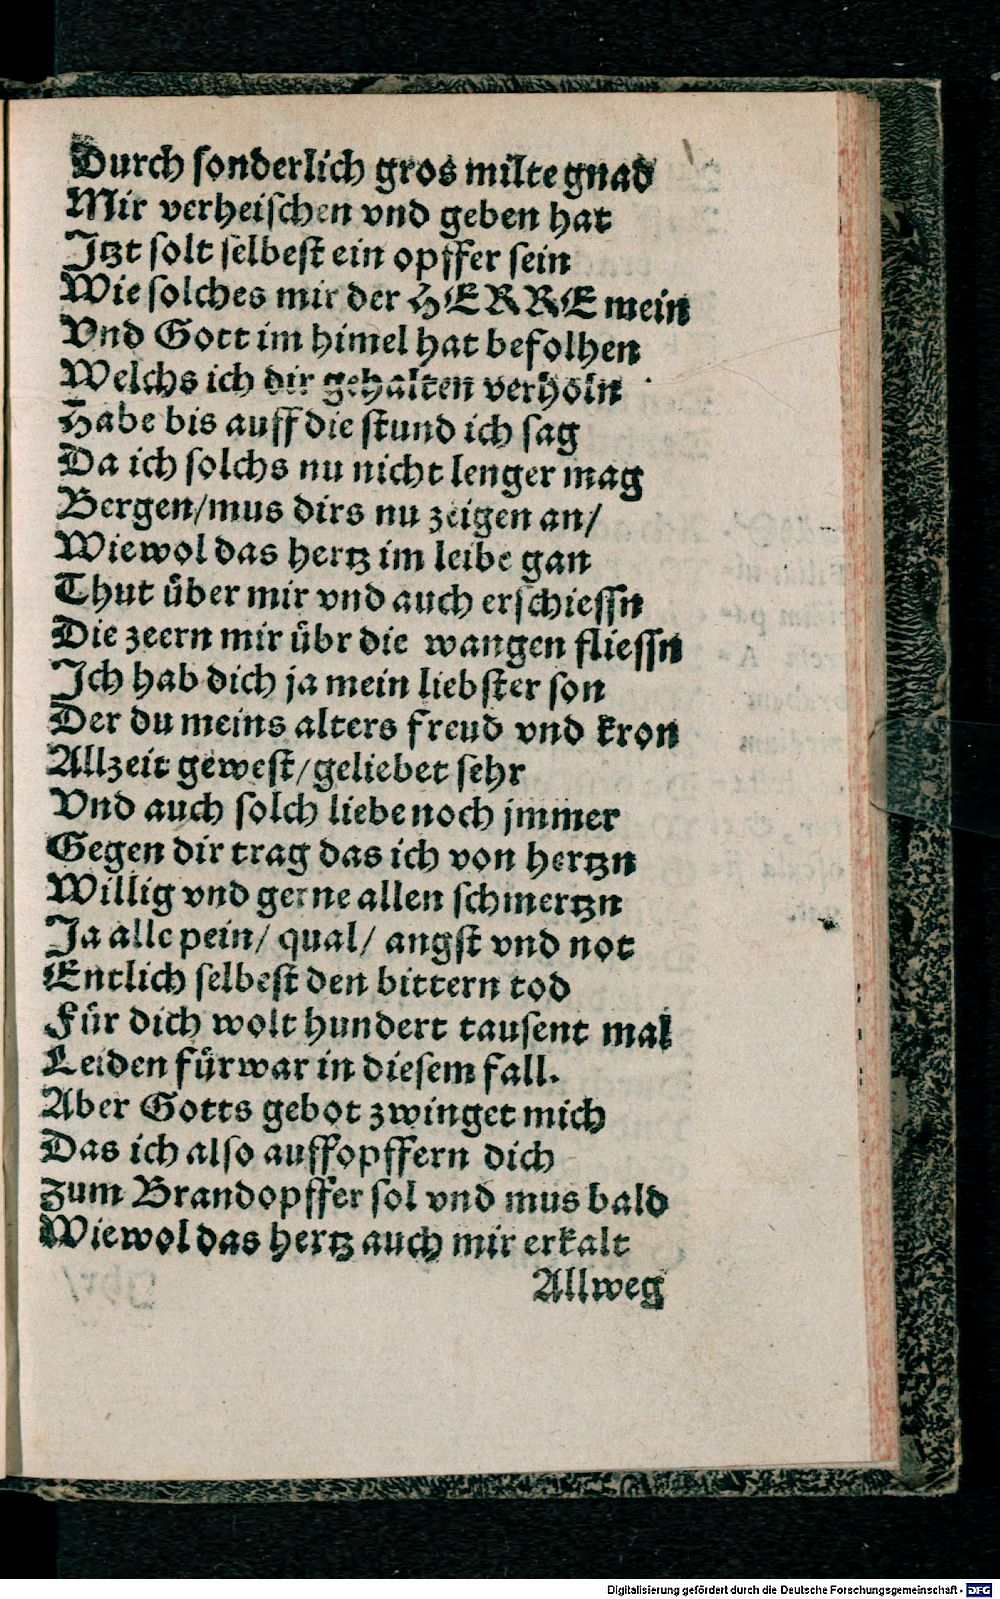 Durch sonderlich gros milte gnad
Mir verheischen vnd geben hat
Jtzt solt selbest ein opffer sein
Wie solches mir der HERRE mein
Vnd Gott im himel hat befolhen
Welchs ich dir gehalten verholn
Habe bis auff die stund ich sag
Da ich solchs nu nicht lenger mag
Bergen/mus dirs nu zeigen an/
Wiewol das hertz im leibe gan
Thut über mir vnd auch erschiessn
Die zeern mir übr die wangen fliessn
Jch hab dich ja mein liebster son
Der du meins alters freud vnd kron
Allzeit gewest/geliebet sehr
Vnd auch solch liebe noch jmmer
Gegen dir trag das ich von hertzn
Willig vnd gerne allen schmertzn
Ja alle pein/ qual/ angst vnd not
Entlich selbest den bittern tod
Für dich wolt hundert tausent mal
Leiden fürwar in diesem fall.
Aber Gotts gebot zwinget mich
Das ich also auffopffern dich
Zum Brandopffer sol vnd mus bald
Wiewol das hertz auch mir erkalt
Allweg
Digitalisierung gefördert durch die Deutsche Forschungsgemeinschaft - DFG